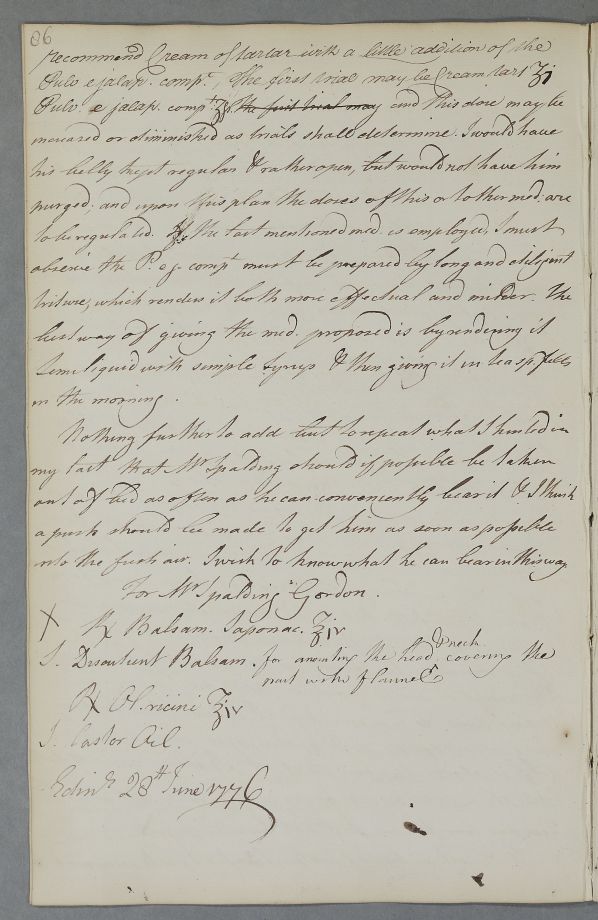 86
recommend Cream of tartar with a little addition of the
Pulv e jalap. comp:, The first trial may be Cream tart ʒj
Pulv. e jalap. comp: the first trial may and this dose may be
increased or diminished as trials shall determine. I would have
his belly kept regular & rather open, but would not have him
purged; and upon this plan the doses of this or tother med: are
to be regulated. If the last mentioned med. is employed, I must
observe the P. e j. comp: must be prepared by long and diligent
triture, which renders it both more effectual and milder. The
best way of giving the med. proposed is by rendering it
Semi liquid with simple syrup & then giving it in teaspfulls
in the morning.
Nothing further to add but to repeat what I hinted in
my last that Mr Spalding should if possible be taken
out of bed as often as he can conveniently bear it & I think
a push should be made to get him as soon as possible
into the fresh air. I wish to know what he can bear in this way.
For Mr Spalding Gordon.
X ℞ Balsam. Saponac. ℥iv
S. Disolvent Balsam. for anointing the head & neck covering the
part with flannel
℞ Ol. ricini ℥iv
S. Castor Oil.
Edinr 28th June 1776